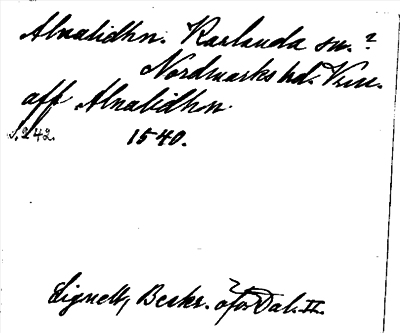 Alnalidhn. Karlanda sn.?
Nordmarks hd. Vrml.
aff Alnalidhn
s. 242. 1540.
Lignell, Beskr. öfver Dal. II.